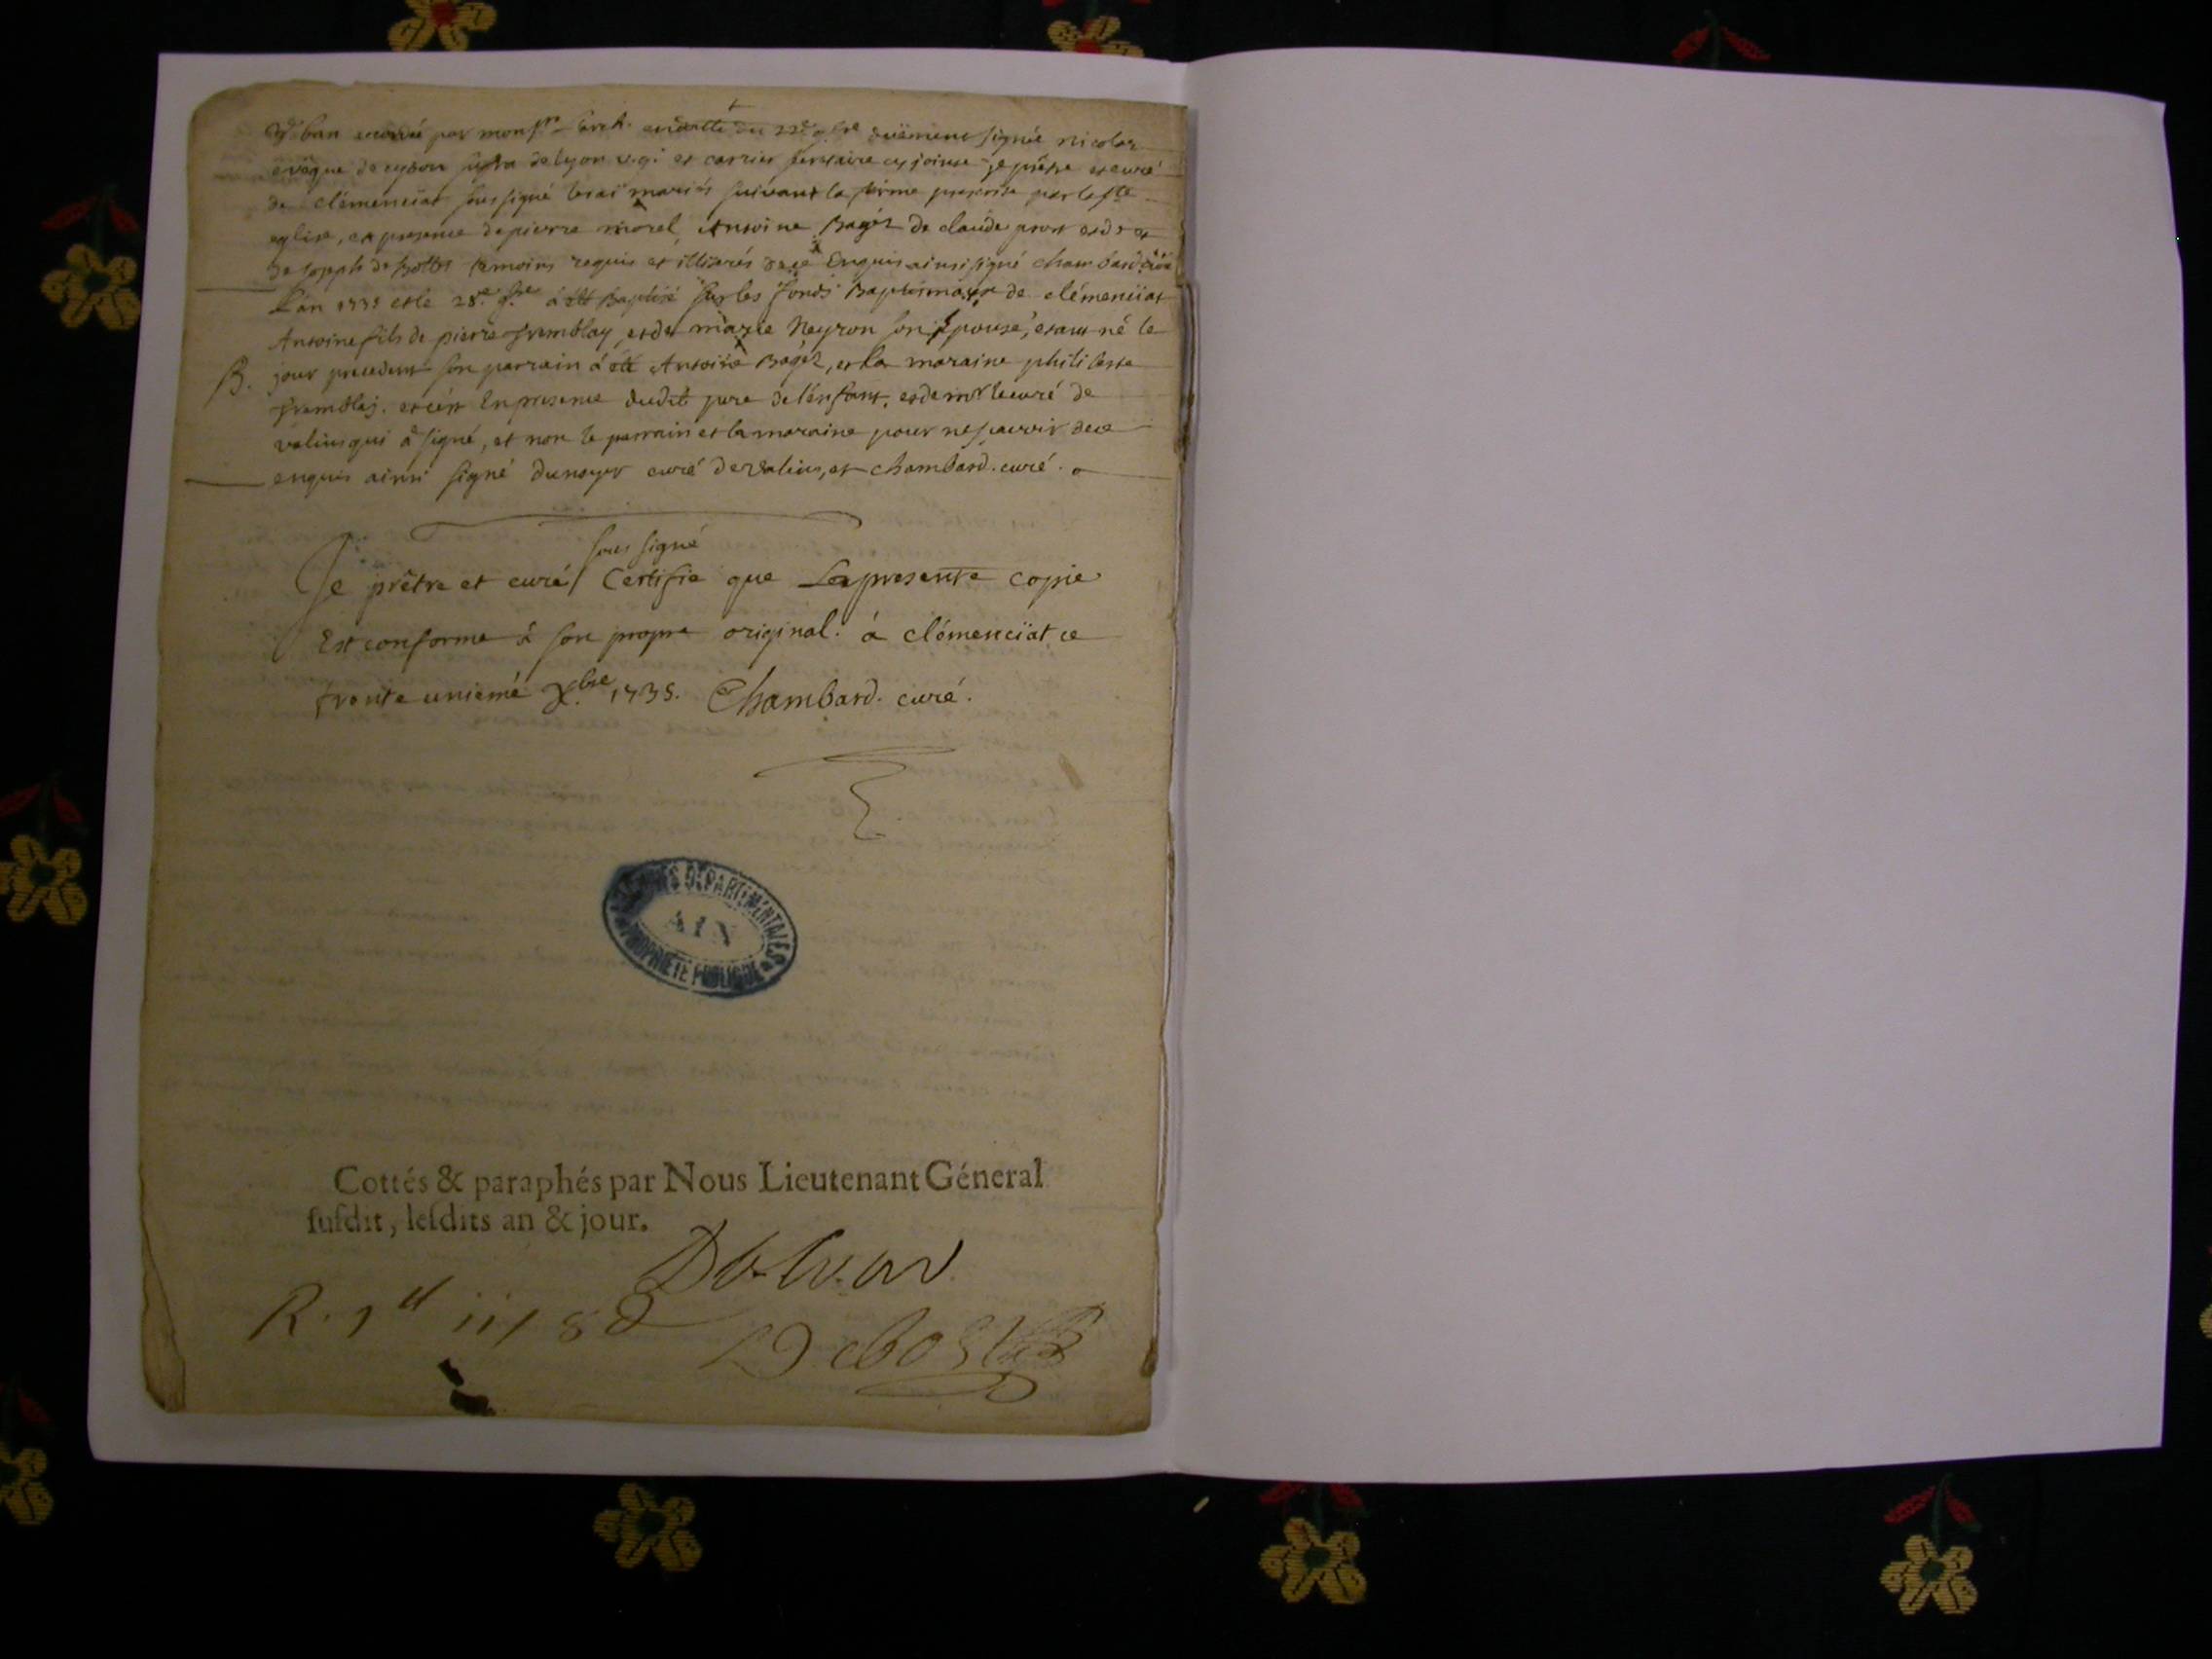 ban par mons.r Arch. en datte du 22e 9bre duëment signée nicolas
evêque de sydon suffra de lyon v.g. et carrier secretaire cy jointe je prêtre et curé
de clémenciat soussigné les ai mariés suivant la forme prescrite par la ste
eglise, en presence de pierre morel, Antoine Bagés de claude prost et de
de joseph de témoins requis et illiterés de ce Enquis ainsi signé chambard curé
L'an 1735 et le 28e 9bre à été Baptisé sur les fonds Baptismaux de clémenciat
Antoine fils de pierre tremblay et de marie Neyron son Epouse, etant né le
B. jour precedent son parrain à été Antoine Bagés, et la maraine philiberte
tremblay. et c'est En presence dudit pere de l'enfant, et de mr le curé de
valins qui à signé, et non le parrain et la maraine pour ne sçavoir de ce
enquis ainsi signé dunoyer curé de valins, et chambard. curé.
sous signé
Je prêtre et curé / Certifie que La presente copie
Est conforme à son propre original. à clémenciat ce
trente uniemé Xbre 1735. Chambard. curé.
ARCHIVES DEPARTEMENTALES
AIN
PROPRIETE PUBLIQUE
Cottés & paraphés par Nous Lieutenant Géneral
susdit, lesdits an & jour.